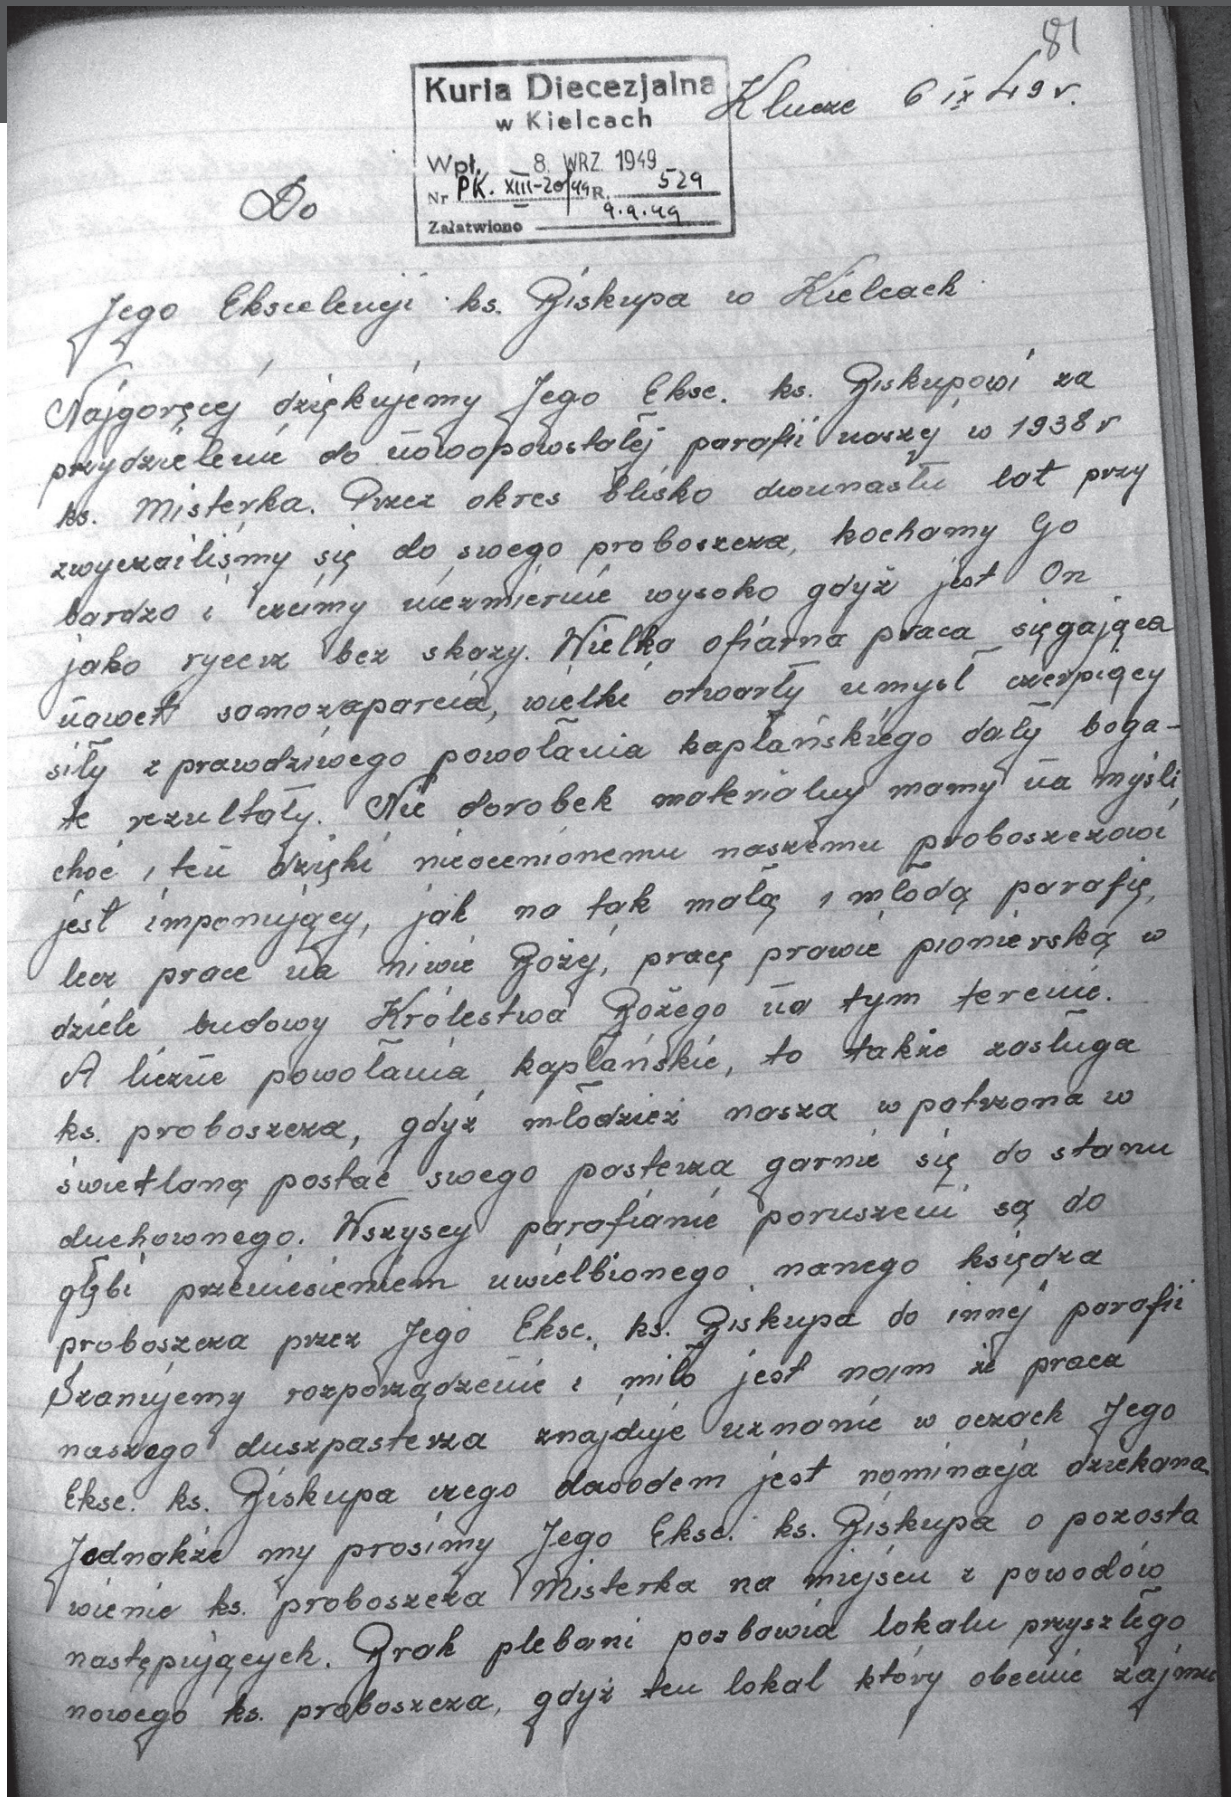 81
Kuria Diecezjalna
w Kielcach
Klucze 6 IX 49 r.
Wpł. 8. WRZ. 1949
Nr PK. XIII-20/49 R. 529
Załatwiono 9.9.49
Do
Jego Ekscelencji ks. Biskupa w Kielcach
Najgoręcej dziękujemy Jego Eksc. ks. Biskupowi za
przydzielenie do nowopowstałej parafii naszej w 1938 r
ks. Misterka. Przez okres blisko dwunastu lat przy
zwyczailiśmy się do swego proboszcza, kochamy Go
bardzo i czcimy niezmiernie wysoko gdyż jest On
jako rycerz bez skazy. Wielka ofiarna praca sięgająca
nawet samozaparcia, wielki otwarty umysł czerpiący
siły z prawdziwego powołania kapłańskiego dały boga-
te rezultaty. Nie dorobek materialny mamy na myśli
choć i ten dzięki nieocenionemu naszemu proboszczowi
jest imponujący, jak na tak małą i młodą parafię,
lecz prace na niwie Bożej, pracę prawie pionierską w
dziele budowy Królestwa Bożego na tym terenie.
A liczne powołania kapłańskie, to także zasługa
ks. proboszcza, gdyż młodzież nasza wpatrzona w
świetlaną postać swego pasterza garnie się do stanu
duchownego. Wszyscy parafianie poruszeni są do
głębi przeniesieniem uwielbionego nanego księdza
proboszcza przez Jego Eksc. ks. Biskupa do innej parafii
Szanujemy rozporządzenie i miło jest nam że praca
naszego duszpasterza znajduje uznanie w oczach Jego
Eksc. ks. Biskupa czego dowodem jest nominacja dziekana
Jednakże my prosimy Jego Eksc. ks. Biskupa o pozosta
wienie ks. proboszcza Misterka na miejscu z powodów
następujących. Brak plebani pozbawia lokalu przyszłego
nowego ks. proboszcza, gdyż ten lokal który obecnie zajmu